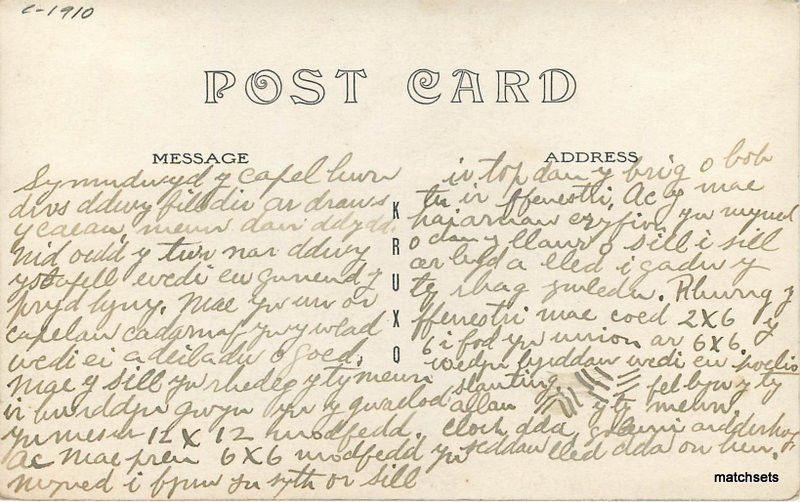 c-1910
POST CARD
MESSAGE
ADDRESS
Symudwyd y capel hwn
dros ddwy filldir ar draws
y caeau, mewn dau ddydd.
Nid oedd y twr nar ddwy
ystafell wedi eu gwneud y
pryd hyny. Mae yn un or
capelau cadarnaf yn y wlad
wedi ei adeiladu o goed.
Mae y sill yn rhedeg y ty mewn
ir bwrddyn gwyn yn y gwaelod
yn mesur 12 X 12 modfedd.
Ac mae pren 6 X 6 modfedd yn
myned i fynu yn syth or sill
ir top dan y brig o bob
tu ir ffenestri. Ac y mae
haiarnau cryfion yn myned
o dan y llawr o sill i sill
ar hyd a lled i gadw y
ty rhag Rhwng y
ffenestri mae coed 2X6 y
6 i fod yn union ar 6X6. y
wedyn byrddau wedi eu hoelio
slanting fel hyn y ty
allan y ty mewn.
Cloch dda, ardderchog
seddau lled dda on hen.
KRUXO
matchsets